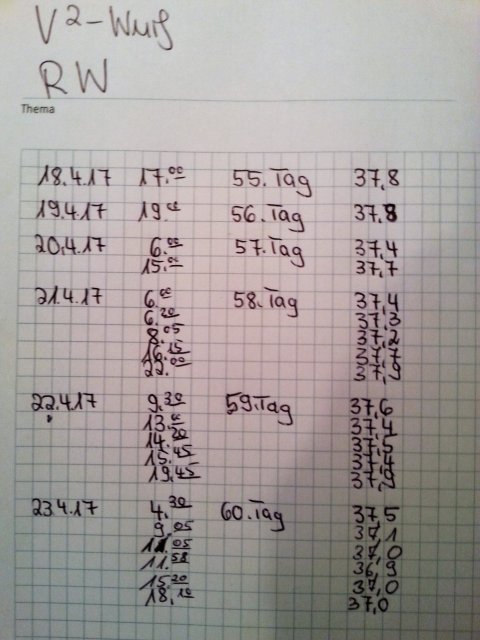 V²-Wurf
RW
Thema
18.4.17 17.00 55.Tag 37,8
19.4.17 19.00 56.Tag 37,8
20.4.17 6.00 57.Tag 37,4
15.00 37,7
21.4.17 6.00 58.Tag 37,4
6.20 37,3
8.05 37,2
16.15 37,7
22.00 37,9
22.4.17 9.30 59.Tag 37,6
13.00 37,4
14.30 37,5
15.45 37,7
19.45 37,9
23.4.17 4.30 60.Tag 37,5
9.05 37,1
11.05 37,0
11.58 36,9
15.20 37,0
18.10 37,0